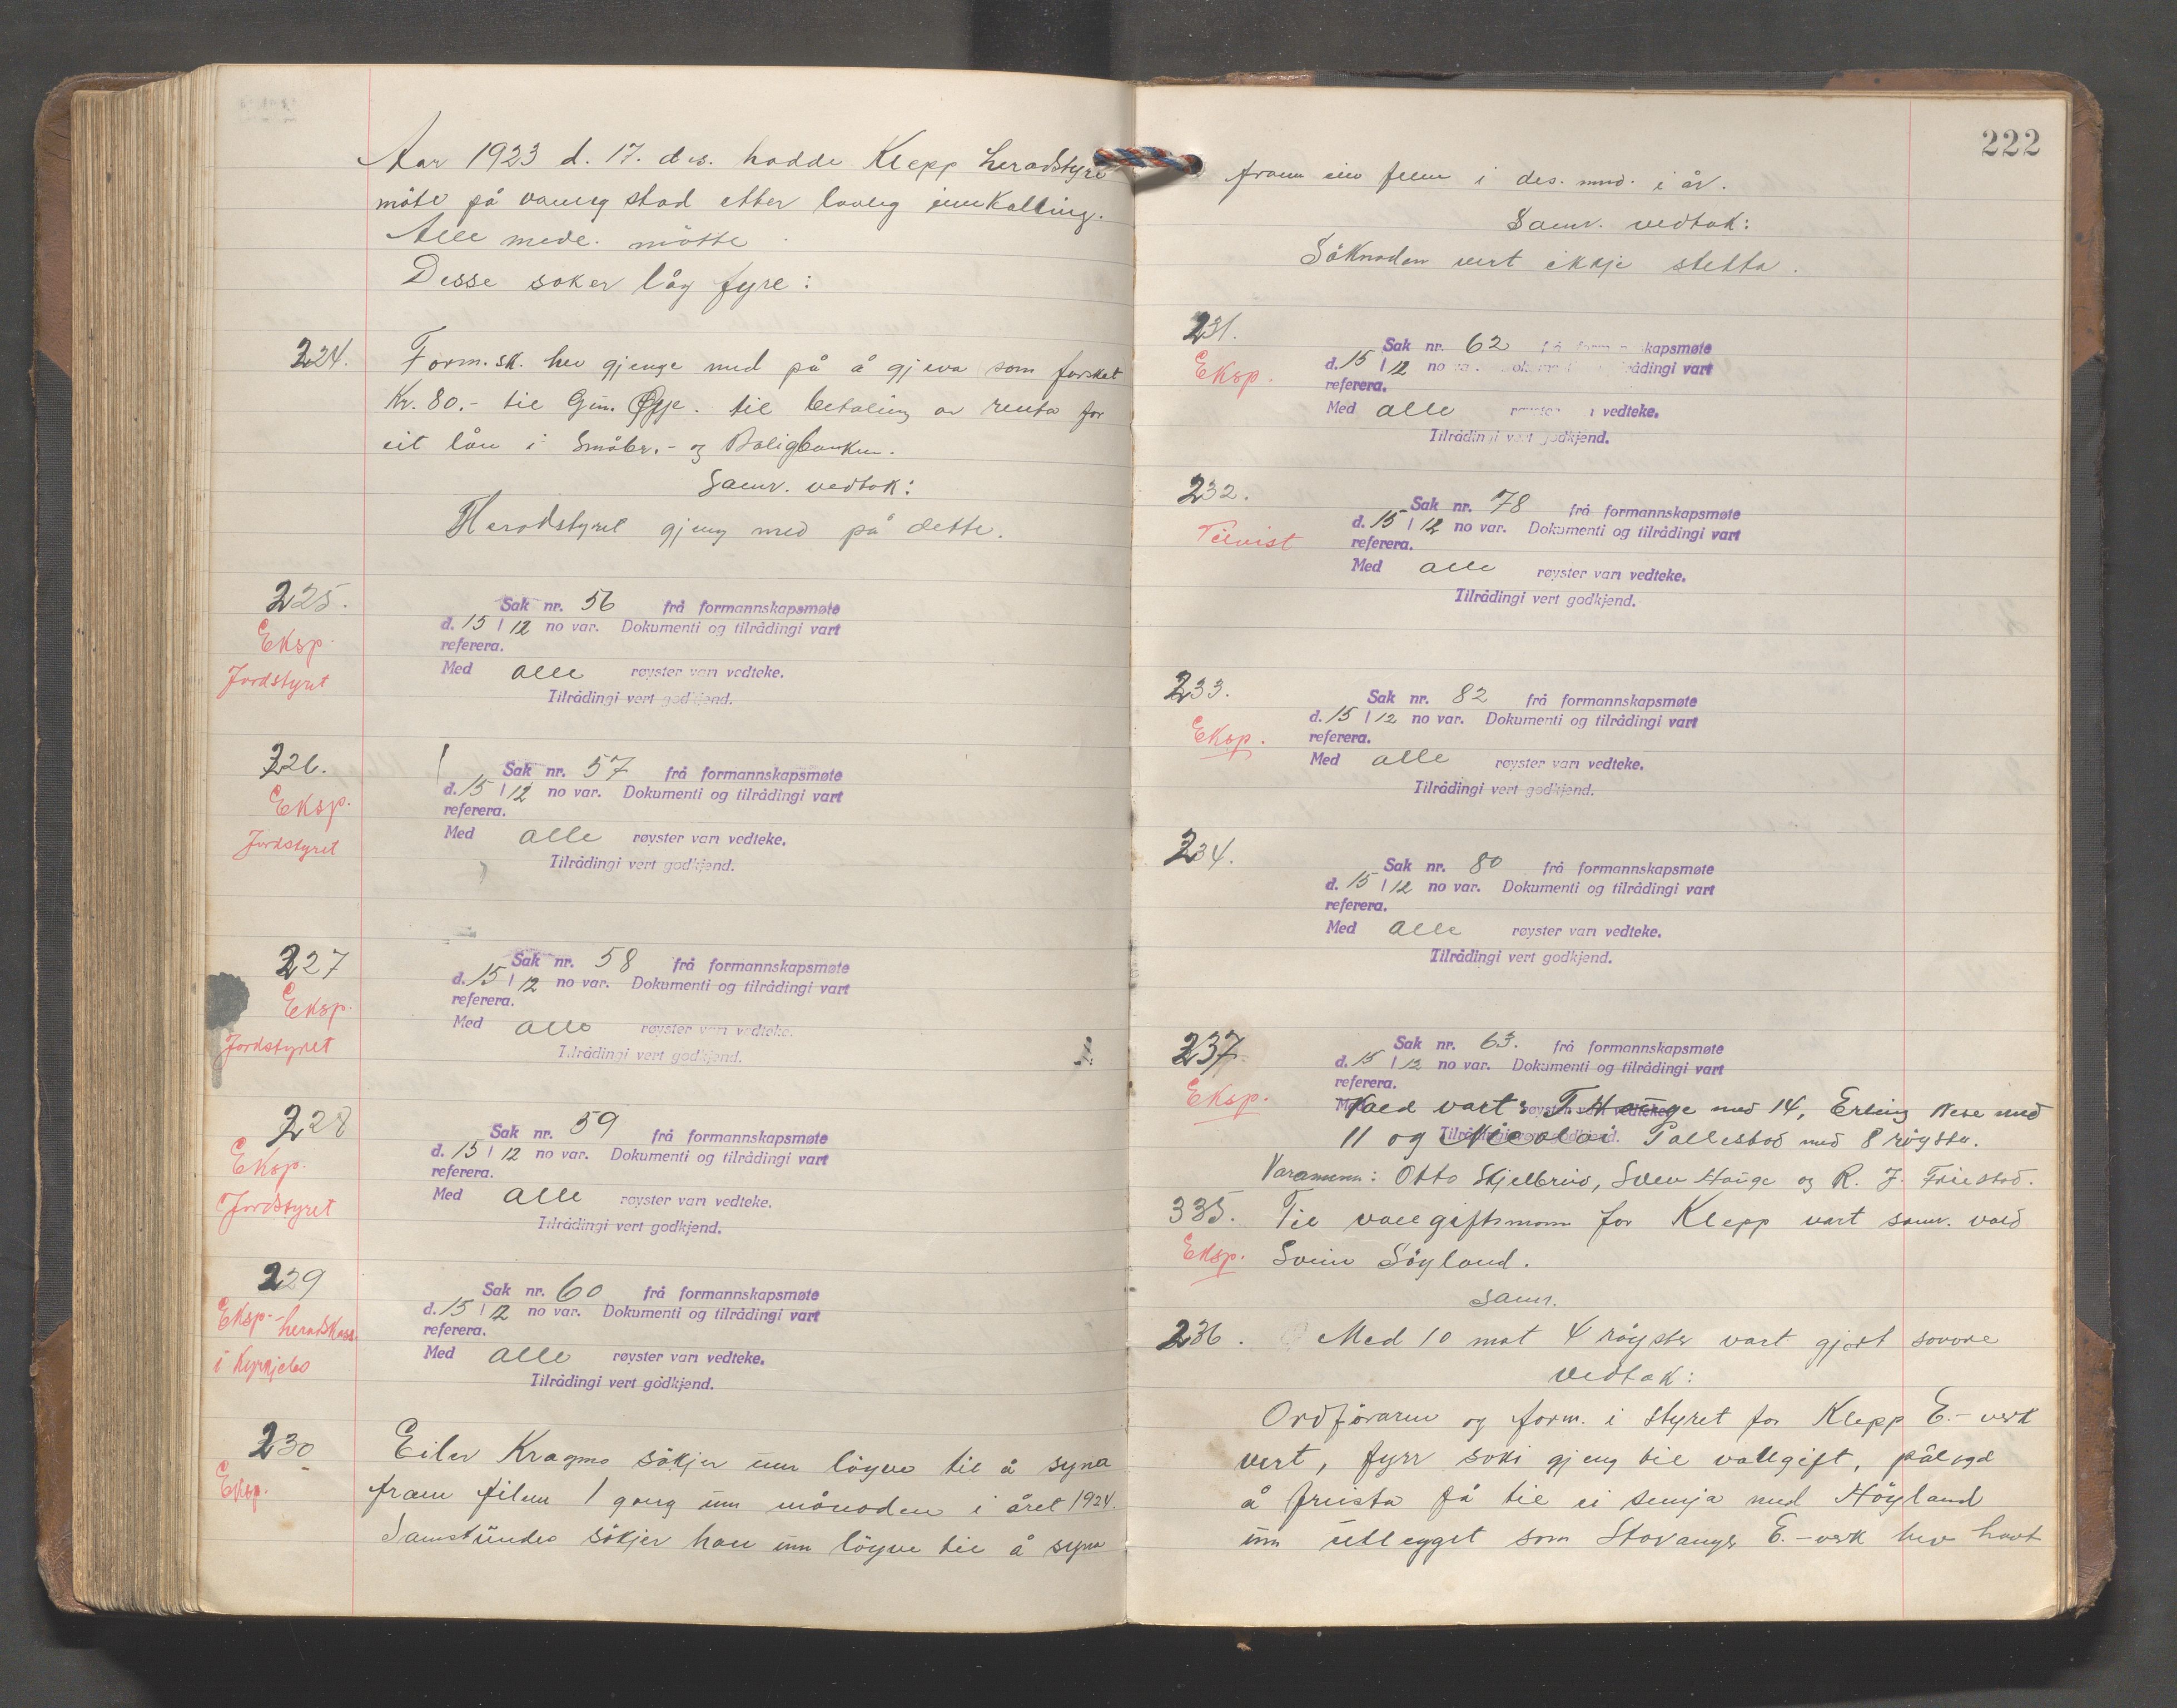 Aar 1923 d. 17. des. hadde Klepp heradstyre
møte på vanleg stad etter lovleg innkalling.
Alle medl. møtte.
Desse saker låg fyre:
224. Form.sk. hev gjenge med på å gjeva som forskot
Kr. 80.- til Gun. til betaling av renta for
eit lån i Småbr.- og Boligbanken.
Samr. vedtok:
Heradstyret gjeng med på dette.
225. Sak nr. 56 frå formannskapsmøte
Eksp. d. 15 / 12 no var. Dokumenti og tilrådingi vart
referera.
Jordstyret Med alle røyster vart vedteke.
Tilrådingi vert godkjend.
226. Sak nr. 57 frå formannskapsmøte
Eksp. d. 15 / 12 no var. Dokumenti og tilrådingi vart
referera.
Jordstyret Med alle røyster vart vedteke.
Tilrådingi vert godkjend.
227 Sak nr. 58 frå formannskapsmøte
Eksp. d. 15 / 12 no var. Dokumenti og tilrådingi vart
referera.
Jordstyret Med alle røyster vart vedteke.
Tilrådingi vert godkjend.
228 Sak nr. 59 frå formannskapsmøte
Eksp. d. 15 / 12 no var. Dokumenti og tilrådingi vart
referera.
Jordstyret Med alle røyster vart vedteke.
Tilrådingi vert godkjend.
229 Sak nr. 60 frå formannskapsmøte
Eksp. heradskass. d. 15 / 12 no var. Dokumenti og tilrådingi vart
referera.
i Med alle røyster vart vedteke.
Tilrådingi vert godkjend.
230 Eiler Kragmo søkjer um løyve til å syna
Eksp. fram film 1 gong um månaden i året 1924.
Samstundes søkjer han um løyve til å syna
222
fram ein film i des. mnd. i år.
Samr. vedtok:
Søknaden vert ikkje stetta.
231. Sak nr. 62 frå formannskapsmøte
Eksp. d. 15 / 12 no var. Dokumenti og tilrådingi vart
referera.
Med alle røyster vart vedteke.
Tilrådingi vert godkjend.
232. Sak nr. 78 frå formannskapsmøte
d. 15 / 12 no var. Dokumenti og tilrådingi vart
Tilvist referera.
Med alle røyster vart vedteke.
Tilrådingi vert godkjend.
233. Sak nr. 82 frå formannskapsmøte
d. 15 / 12 no var. Dokumenti og tilrådingi vart
Eksp. referera.
Med alle røyster vart vedteke.
Tilrådingi vert godkjend.
234. Sak nr. 80 frå formannskapsmøte
d. 15 / 12 no var. Dokumenti og tilrådingi vart
referera.
Med alle røyster vart vedteke.
Tilrådingi vert godkjend.
237. Sak nr. 63. frå formannskapsmøte
d. 15 / 12 no var. Dokumenti og tilrådingi vart
referera.
Eksp. Vald vart: T. Hauge med 14, Erling Nese med
11 og Nicolai Pallestad med 8 røyster.
Varamenn: Otto Skjelbreid, Sven Hauge og R. J. Friestad.
335. Til vallgiftsmann for Klepp vart samr. vald
Eksp. Svein Søyland.
Samr.
236. Med 10 mot 4 røyster vart gjort sovore
vedtak:
Ordføraren og form. i styret for Klepp E.-verk
vert, fyrr saki gjeng til vallgift, pålagd
å freista få til ei semja med Høyland
um utlegget som Stavanger E.-verk hev havt